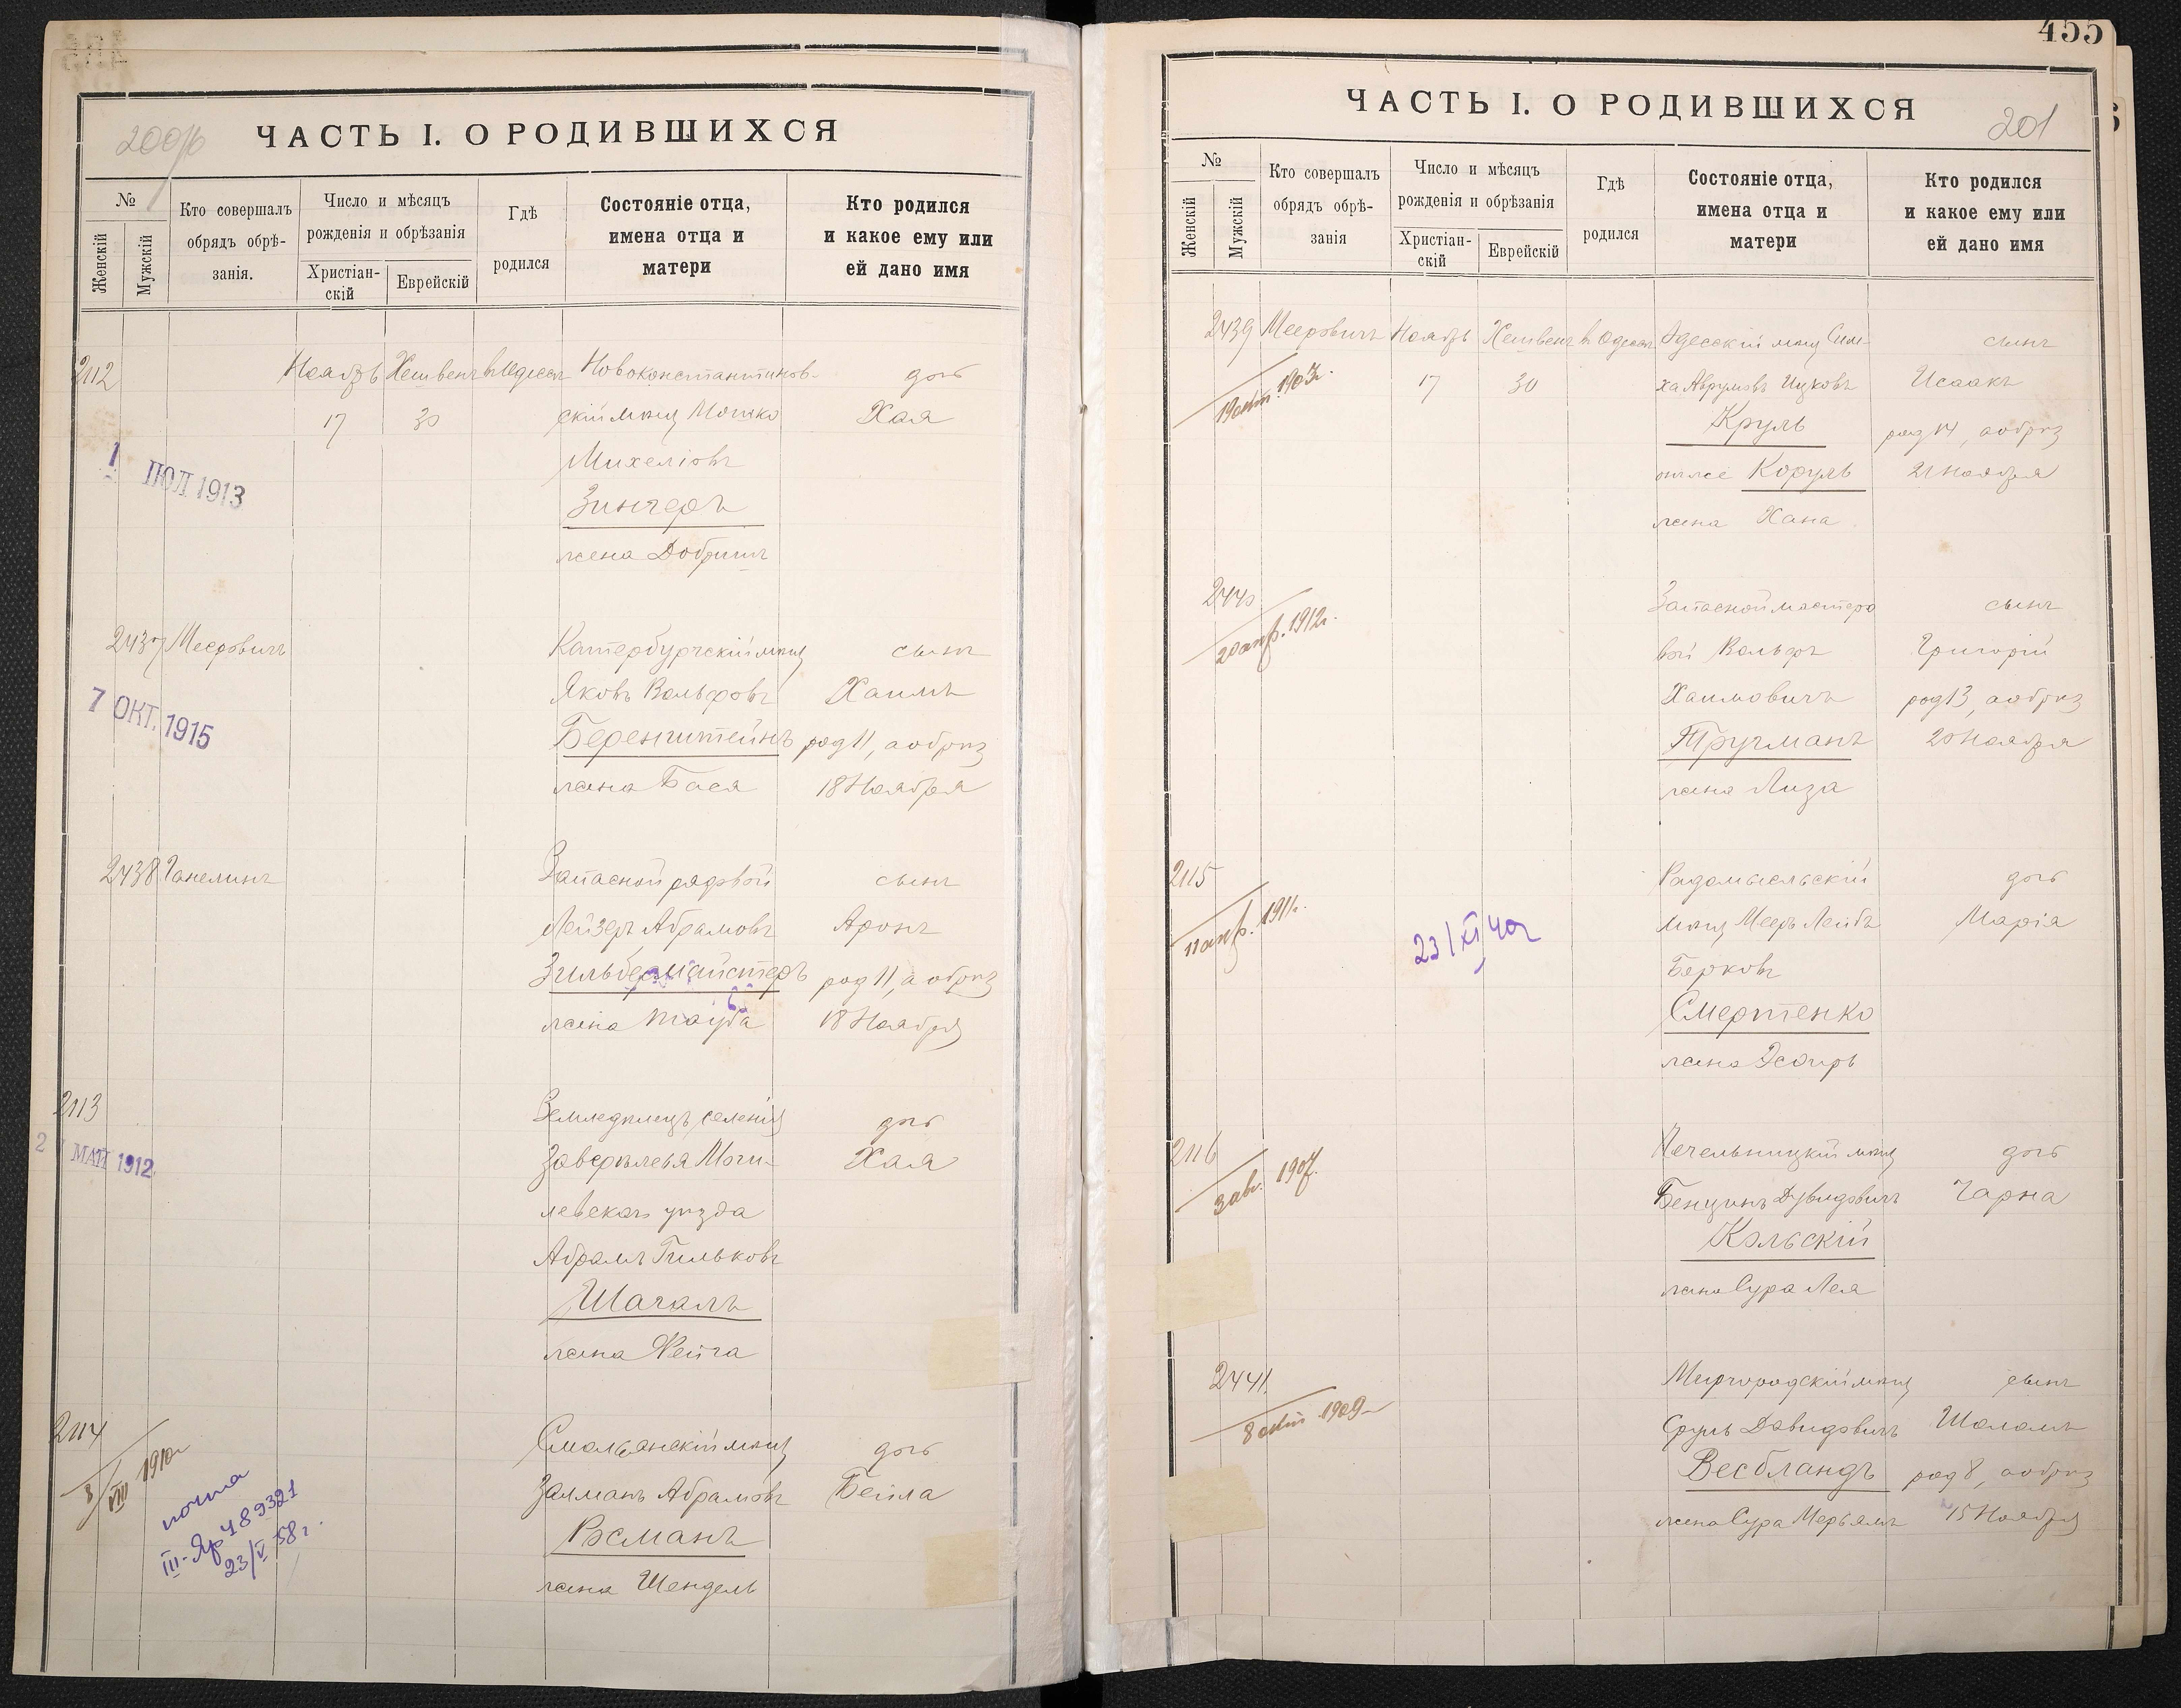 200об
ЧАСТЬ I. О РОДИВШИХСЯ
№
Женскій
Мужскій
Кто совершалъ
обрядъ обрѣ-
занія.
Число и мѣсяцъ
рожденія и обрѣзанія
Христіан-
скій
Еврейскій
Гдѣ
родился
Состояніе отца,
имена отца и
матери
Кто родился
и какое ему или
ей дано имя
2112 Ноябрь Хешвенъ въ Одессѣ Новоконстантинов- дочь
17 30 скій мѣщ Мошко Хая
Михеліовъ
1 ІЮЛ 1913
Зингеръ
жена Добришъ
2437 Мееровичъ Катербургскій мѣщ сынъ
Яковъ Вольфовъ Хаимъ
7 ОКТ. 1915
Беренштейнъ род 11, а обрѣз
жена Бася 18 Ноября
2438 Ганелинъ Запасной рядовой сынъ
Лейзеръ Абрамовъ Аронъ
Зильбермайстеръ род 11, а обрѣз
жена Тауба 18 Ноября
2113 Земледѣлецъ селенія дочь
2 МАЙ 1912 Моги- Хая
левскаго уѣзда
Абрамъ
Шагалъ
жена Фейга
2114 мѣщ дочь
3/VIII 1910 г
Залманъ Абрамовъ Бейла
почта
III-Яр 489321
23/V 58 г.
Росманъ
жена Шендель
455
201
ЧАСТЬ I. О РОДИВШИХСЯ
№
Женскій
Мужскій
Кто совершалъ
обрядъ обрѣ-
занія
Число и мѣсяцъ
рожденія и обрѣзанія
Христіан-
скій
Еврейскій
Гдѣ
родился
Состояніе отца,
имена отца и
матери
Кто родился
и какое ему или
ей дано имя
2439 Мееровичъ Ноябрь Хешвенъ въ Одессѣ Одесскій мѣщ Сим- сынъ
1903 г.
17 30 ха Аврумовъ Ицковъ Исаакъ
Круль род 14, а обрѣз
онъ же Коруль 21 Ноября
жена Хана
2440 Запасной мастеро сынъ
20 апр. 1912 г.
вой Вольфъ Григорій
Хаимовичъ род 13, а обрѣз
Тругманъ 20 Ноября
жена Лиза
2115 Радомысльскій дочь
11 апр. 1911 г.
23/XI 40 г
мѣщ Мееръ Лейбъ Марія
Берковъ
Смертенко
жена Эсфирь
2116 Печельницкій мѣщ дочь
3 авг. 1907.
Бенціонъ Дувидовичъ Чарна
Кольскій
жена Сура Лея
2441. Миргородскій мѣщ сынъ
8 1909 г
Сруль Давидовичъ Шоломъ
Весбландъ род 8, а обрѣз
жена Сура Мерьямъ 15 Ноября